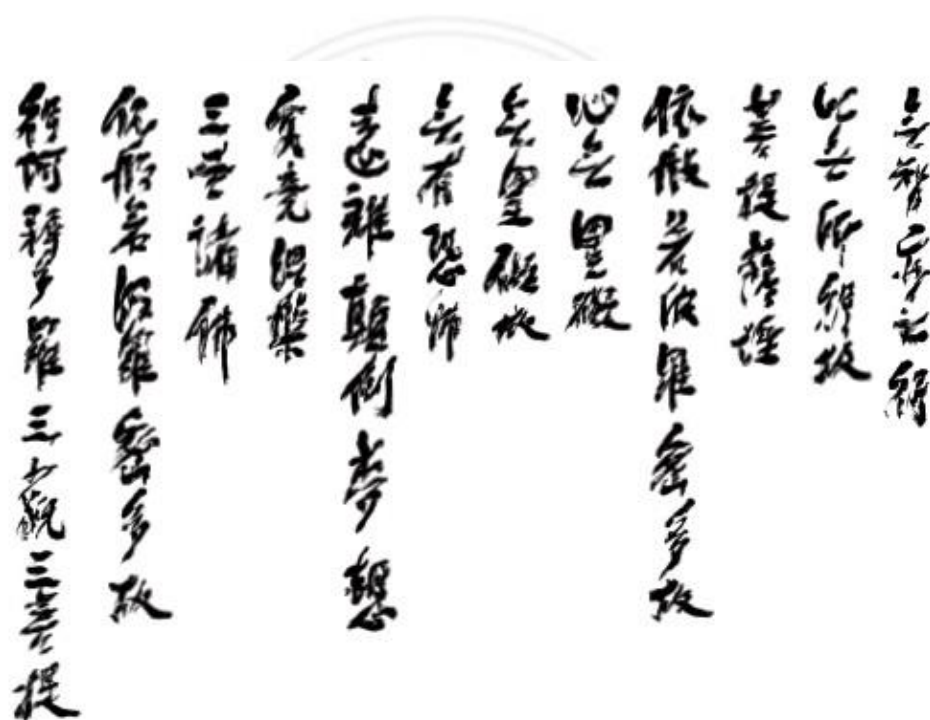 無智亦無得
以無所得故
菩提薩埵
依般若波羅蜜多故
心無罣礙
無罣礙故
無有恐怖
遠離顛倒夢想
究竟涅槃
三世諸佛
依般若波羅蜜多故
得阿耨多羅三藐三菩提